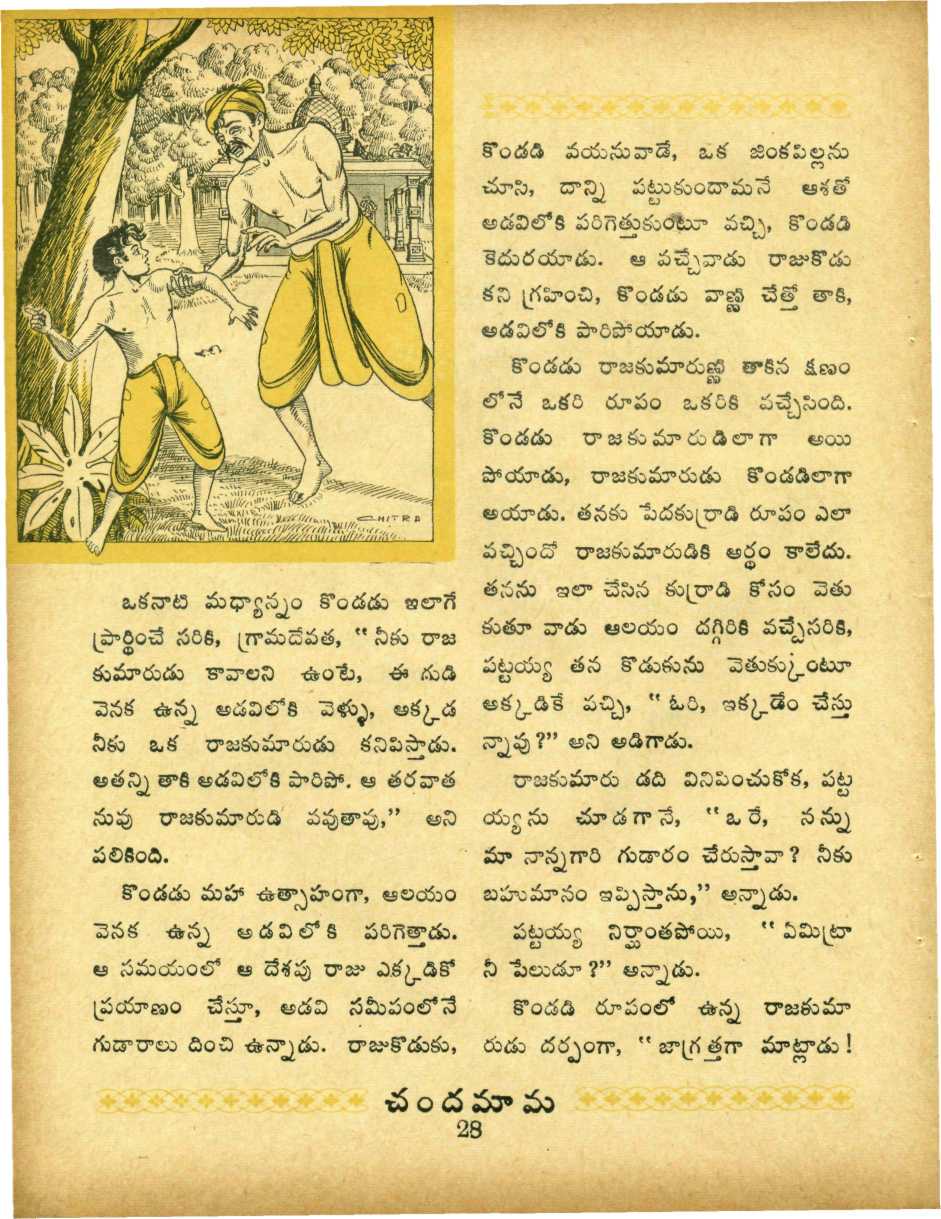 CHITRA
ఒకనాటి మధ్యాన్నం కొండడు ఇలాగే
ప్రార్థించే సరికి, గ్రామదేవత, “ నీకు రాజ
కుమారుడు కావాలని ఉంటే, ఈ గుడి
వెనక ఉన్న అడవిలోకి వెళ్ళు, అక్కడ
నీకు ఒక రాజకుమారుడు కనిపిస్తాడు.
అతన్ని తాకి అడవిలోకి పారిపో. ఆ తరవాత
నువు రాజకుమారుడి వవుతావు,” అని
పలికింది.
కొండడు మహా ఉత్సాహంగా, ఆలయం
వెనక ఉన్న అడవిలోకి పరిగెత్తాడు.
ఆ సమయంలో ఆ దేశపు రాజు ఎక్కడికో
ప్రయాణం చేస్తూ, అడవి సమీపంలోనే
గుడారాలు దించి ఉన్నాడు. రాజుకొడుకు,
కొండడి వయసువాడే, ఒక జింకపిల్లను
చూసి, దాన్ని పట్టుకుందామనే ఆశతో
అడవిలోకి పరిగెత్తుకుంటూ వచ్చి, కొండడి
కెదురయాడు. ఆ వచ్చేవాడు రాజుకొడు
కని గ్రహించి, కొండడు వాణ్ణి చేత్తో తాకి,
అడవిలోకి పారిపోయాడు.
కొండడు రాజకుమారుణ్ణి తాకిన క్షణం
లోనే ఒకరి రూపం ఒకరికి వచ్చేసింది.
కొండడు రాజకుమారుడిలాగా అయి
పోయాడు, రాజకుమారుడు కొండడిలాగా
అయాడు. తనకు పేదకుర్రాడి రూపం ఎలా
వచ్చిందో రాజకుమారుడికి అర్థం కాలేదు.
తనను ఇలా చేసిన కుర్రాడి కోసం వెతు
కుతూ వాడు ఆలయం దగ్గిరికి వచ్చేసరికి,
పట్టయ్య తన కొడుకును వెతుక్కుంటూ
అక్కడికే వచ్చి, “ ఓరి, ఇక్కడేం చేస్తు
న్నావు?” అని అడిగాడు.
రాజకుమారు డది వినిపించుకోక, పట్ట
య్యను చూడగానే, “ఒరే, నన్ను
మా నాన్నగారి గుడారం చేరుస్తావా? నీకు
బహుమానం ఇప్పిస్తాను,” అన్నాడు.
పట్టయ్య నిర్ఘాంతపోయి, “ ఏమిట్రా
నీ పేలుడూ?” అన్నాడు.
కొండడి రూపంలో ఉన్న రాజకుమా
రుడు దర్పంగా, “ జాగ్రత్తగా మాట్లాడు!
చందమామ
28